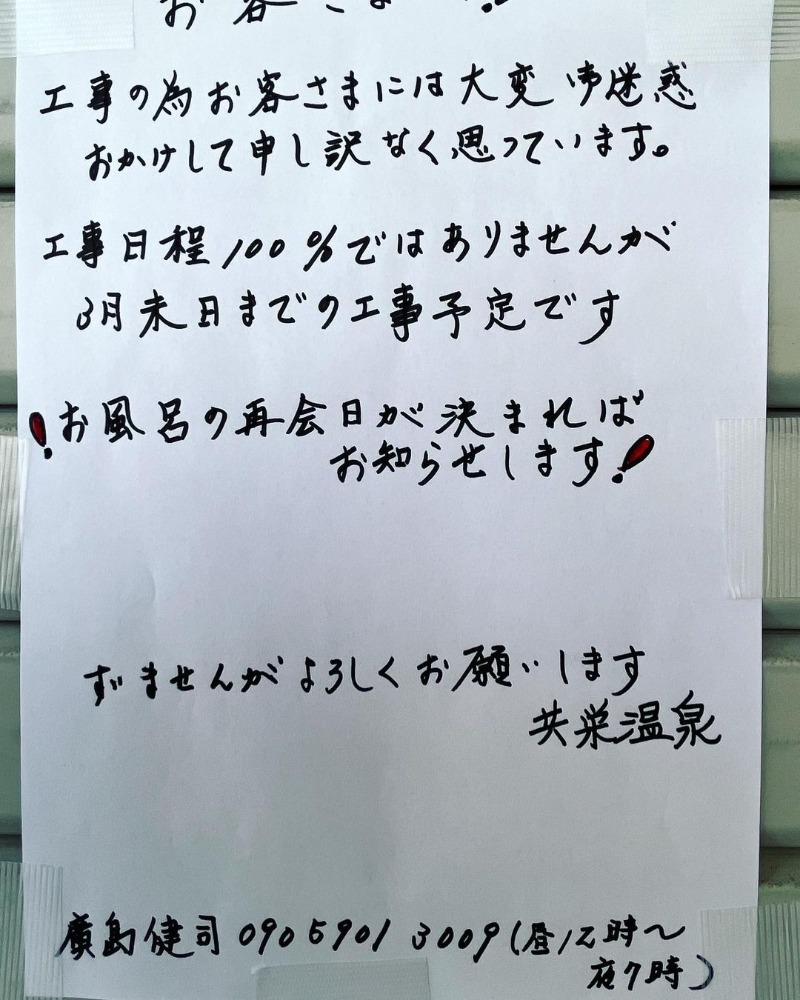 お客さま
工事の為お客さまには大変御迷惑
おかけして申し訳なく思っています。
工事日程100%ではありませんが
3月末日までの工事予定です
!お風呂の再会日が決まれば
お知らせします!
ずみませんがよろしくお願いします
共栄温泉
廣島健司 0905901 3009(昼12時〜
夜7時)